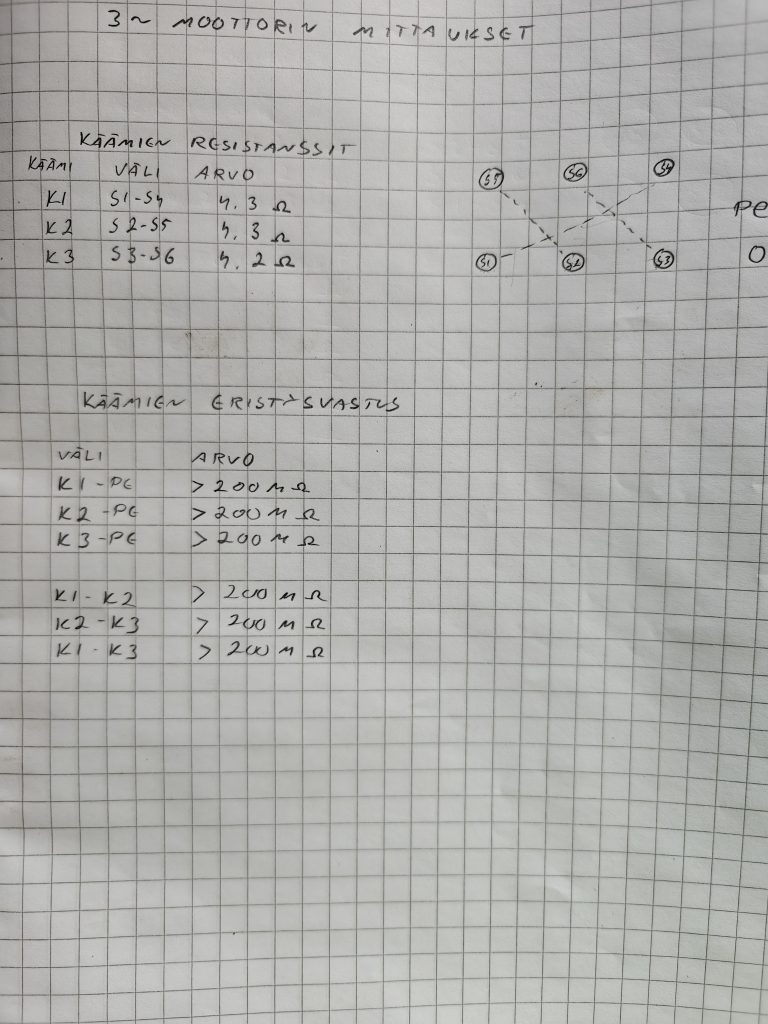 3~ MOOTTORIN MITTAUKSET
KÄÄMIEN RESISTANSSIT
KÄÄMI VÄLI ARVO
K1 S1-S4 4.3 Ω
K2 S2-S5 4.3 Ω
K3 S3-S6 4.2 Ω
S5 S6 S4
PE
S1 S2 S3 O
KÄÄMIEN ERISTYSVASTUS
VÄLI ARVO
K1-PE >200 M Ω
K2-PE >200 M Ω
K3-PE >200 M Ω
K1-K2 > 200 M Ω
K2-K3 > 200 M Ω
K1-K3 > 200 M Ω